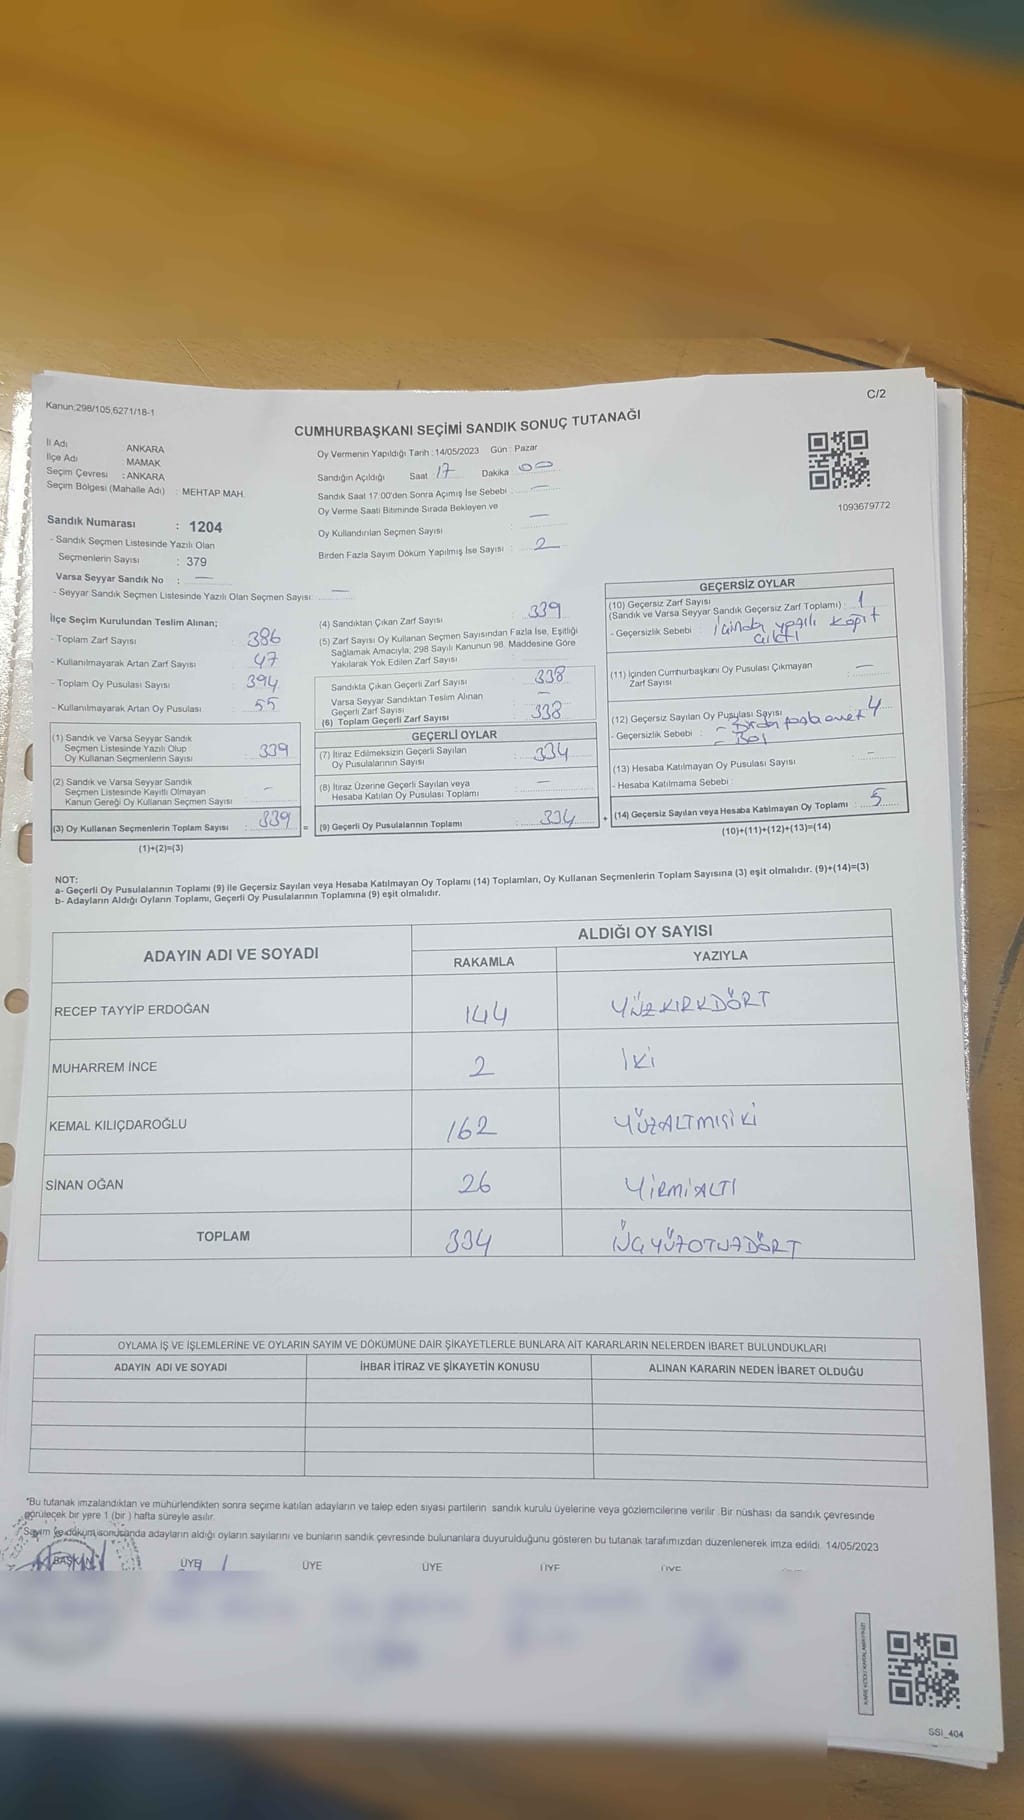 Kanun;298/105,6271/18-1
C/2
CUMHURBAŞKANI SEÇİMİ SANDIK SONUÇ TUTANAĞI
İl Adı ANKARA
İlçe Adı : MAMAK
Seçim Çevresi : ANKARA
Seçim Bölgesi (Mahalle Adı) : MEHTAP MAH.
Sandık Numarası : 1204
- Sandık Seçmen Listesinde Yazılı Olan
Seçmenlerin Sayısı : 379
Varsa Seyyar Sandık No : —
- Seyyar Sandık Seçmen Listesinde Yazılı Olan Seçmen Sayısı: —
Oy Vermenin Yapıldığı Tarih : 14/05/2023 Gün : Pazar
Sandığın Açıldığı Saat 17 Dakika 00
Sandık Saat 17.00'den Sonra Açımış İse Sebebi : —
Oy Verme Saati Bitiminde Sırada Bekleyen ve
Oy Kullandırılan Seçmen Sayısı : —
Birden Fazla Sayım Döküm Yapılmış İse Sayısı : 2
1093679772
İlçe Seçim Kurulundan Teslim Alınan;
- Toplam Zarf Sayısı : 386
- Kullanılmayarak Artan Zarf Sayısı : 47
- Toplam Oy Pusulası Sayısı : 394
- Kullanılmayarak Artan Oy Pusulası : 55
(1) Sandık ve Varsa Seyyar Sandık
Seçmen Listesinde Yazılı Olup
Oy Kullanan Seçmenlerin Sayısı : 339
(2) Sandık ve Varsa Seyyar Sandık
Seçmen Listesinde Kayıtlı Olmayan
Kanun Gereği Oy Kullanan Seçmen Sayısı : -
(3) Oy Kullanan Seçmenlerin Toplam Sayısı : 339
(1)+(2)=(3)
(4) Sandıktan Çıkan Zarf Sayısı : 339
(5) Zarf Sayısı Oy Kullanan Seçmen Sayısından Fazla İse, Eşitliği
Sağlamak Amacıyla; 298 Sayılı Kanunun 98. Maddesine Göre
Yakılarak Yok Edilen Zarf Sayısı :
Sandıkta Çıkan Geçerli Zarf Sayısı : 338
Varsa Seyyar Sandıktan Teslim Alınan
Geçerli Zarf Sayısı : —
(6) Toplam Geçerli Zarf Sayısı : 338
GEÇERLİ OYLAR
(7) İtiraz Edilmeksizin Geçerli Sayılan
Oy Pusulalarının Sayısı : 334
(8) İtiraz Üzerine Geçerli Sayılan veya
Hesaba Katılan Oy Pusulası Toplamı : —
= (9) Geçerli Oy Pusulalarının Toplamı : 334
GEÇERSİZ OYLAR
(10) Geçersiz Zarf Sayısı
(Sandık ve Varsa Seyyar Sandık Geçersiz Zarf Toplamı) : 1
- Geçersizlik Sebebi : İçinde yazılı kağıt
çıktı
(11) İçinden Cumhurbaşkanı Oy Pusulası Çıkmayan
Zarf Sayısı : —
(12) Geçersiz Sayılan Oy Pusulası Sayısı : 4
- Geçersizlik Sebebi : - Birden fazla evet
- Boş
(13) Hesaba Katılmayan Oy Pusulası Sayısı : -
- Hesaba Katılmama Sebebi :
+ (14) Geçersiz Sayılan veya Hesaba Katılmayan Oy Toplamı : 5
(10)+(11)+(12)+(13)=(14)
NOT:
a- Geçerli Oy Pusulalarının Toplamı (9) ile Geçersiz Sayılan veya Hesaba Katılmayan Oy Toplamı (14) Toplamları, Oy Kullanan Seçmenlerin Toplam Sayısına (3) eşit olmalıdır. (9)+(14)=(3)
b- Adayların Aldığı Oyların Toplamı, Geçerli Oy Pusulalarının Toplamına (9) eşit olmalıdır.
ADAYIN ADI VE SOYADI
ALDIĞI OY SAYISI
RAKAMLA YAZIYLA
RECEP TAYYİP ERDOĞAN 144 YÜZKIRKDÖRT
MUHARREM İNCE 2 İki
KEMAL KILIÇDAROĞLU 162 YÜZALTMIŞİKİ
SİNAN OĞAN 26 YİRMİALTI
TOPLAM 334 ÜÇYÜZOTUZDÖRT
OYLAMA İŞ VE İŞLEMLERİNE VE OYLARIN SAYIM VE DÖKÜMÜNE DAİR ŞİKAYETLERLE BUNLARA AİT KARARLARIN NELERDEN İBARET BULUNDUKLARI
ADAYIN ADI VE SOYADI İHBAR İTİRAZ VE ŞİKAYETİN KONUSU ALINAN KARARIN NEDEN İBARET OLDUĞU
*Bu tutanak imzalandıktan ve mühürlendikten sonra seçime katılan adayların ve talep eden siyasi partilerin sandık kurulu üyelerine veya gözlemcilerine verilir. Bir nüshası da sandık çevresinde
görülecek bir yere 1 (bir ) hafta süreyle asılır.
Sayım ve döküm sonucunda adayların aldığı oyların sayılarını ve bunların sandık çevresinde bulunanlara duyurulduğunu gösteren bu tutanak tarafımızdan düzenlenerek imza edildi. 14/05/2023
BAŞKAN ÜYE ÜYE ÜYE ÜYE ÜYE
SSI_404